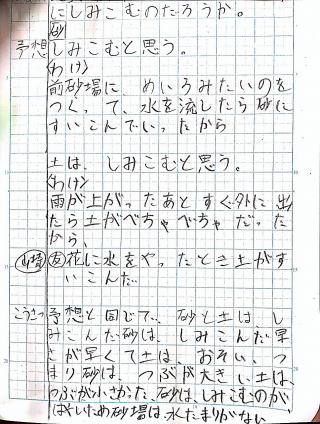 にしみこむのだろうか。
砂
予想 しみこむと思う。
〈わけ〉
前砂場に、めいろみたいのを
つくって、水を流したら砂に
すいこんでいったから
土は、しみこむと思う。
〈わけ〉
雨が上がったあとすぐ外に出
たら土がべちゃべちゃだった
から、
友花に水をやったとき土がす
いこんだ
こうさつ 予想と同じで、砂と土は、し
みこんだ砂は、しみこんだ早
さが早くて土は、おそい、つ
まり砂は、つぶが大きい土は、
つぶが小さかった、砂は、しみこむのが
はやいため砂場は、水だまりがない